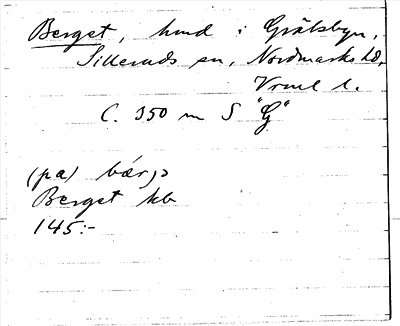 Berget, hmd i Gräsbyn,
Silleruds sn, Nordmarks hd,
Vrml l.
C. 350 m S "G"
(pa) bærjə
Berget hb
145:-